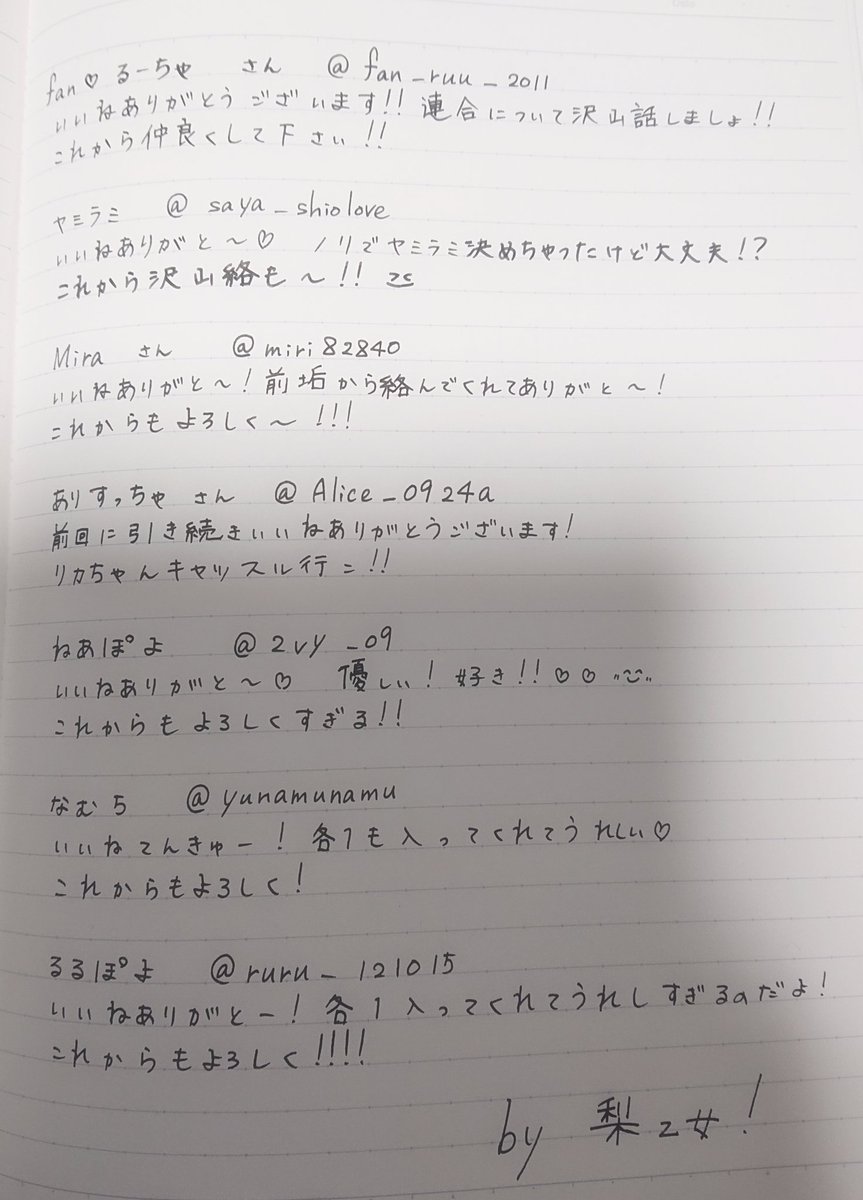 fan♡るーちゃ さん @fan_ruu_2011
いいねありがとうございます!! 連合について沢山話しましょ!!
これから仲良くして下さい!!
ヤミラミ @saya_shiolove
いいねありがと〜♡ ノリでヤミラミ決めちゃったけど大丈夫!?
これから沢山絡も〜!!
Mira さん @miri82840
いいねありがと〜! 前垢から絡んでくれてありがと〜!
これからもよろしく〜!!!
ありすっちゃ さん @Alice_0924a
前回に引き続きいいねありがとうございます!
リカちゃんキャッスル行こ!!
ねあぽよ @2vy_09
いいねありがと〜♡ 優しい! 好き!!♡♡
これからもよろしくすぎる!!
なむち @yunamunamu
いいねてんきゅー! 各1も入ってくれてうれしい♡
これからもよろしく!
るるぽよ @ruru_121015
いいねありがとー! 各1入ってくれてうれしすぎるのだよ!
これからもよろしく!!!!
by 梨乙女!